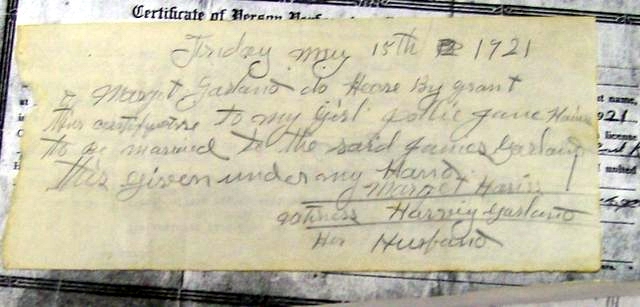 Certificate of Person
Friday my 15th 1921
I Margit Garland do Heare By grant
this certifycate to my Girl pollie Jane Hariss
to be married to the said James Garland
This given under my Hand
Margret Hariss
Harvey Garland
Her Husband
name,
921
license,
united